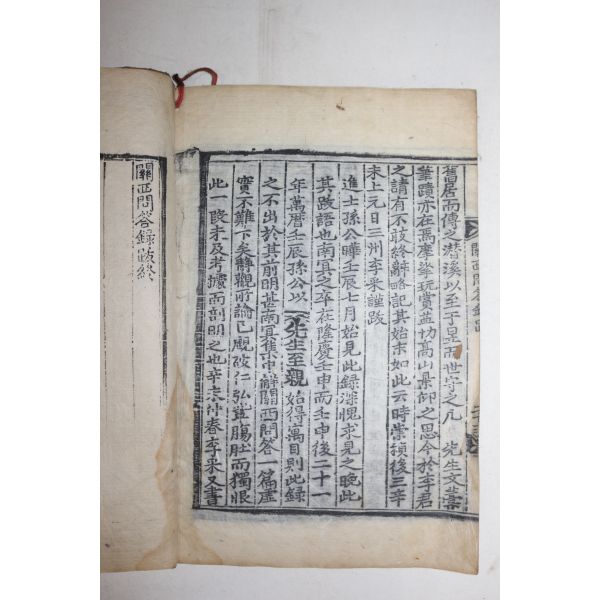 舊居而傳之潛溪以至于是而世守之凡 先生文藁
筆蹟亦在焉摩挲玩賞益切高山景仰之思今於李君
之請有不敢終辭略記其始末如此云時崇禎後三辛
未上元日三州李采謹跋
進士孫公曄壬辰七月始見此錄深愧求見之晚此
其跋語也南冥之卒在隆慶壬申而壬申後二十一
年萬曆壬辰孫公以 先生至親 始得寓目則此錄
之不出於其前明甚南冥集中辭關西問答一篇虛
實不難下矣靜觀所論已覷破仁弘 腸肚而獨恨
此一段未及考據而剖明之也辛未仲春李采又書
關西問答錄跋終